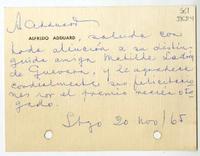 A Adduard
ALFREDO ADDUARD, saluda con
toda atención a su distin-
guida amiga Matilde Ladrón
de Guevara, y le agradece
cordialmente sus felicitacio-
nes por el premio recién otor-
gado.
Stgo 20 Nov/65